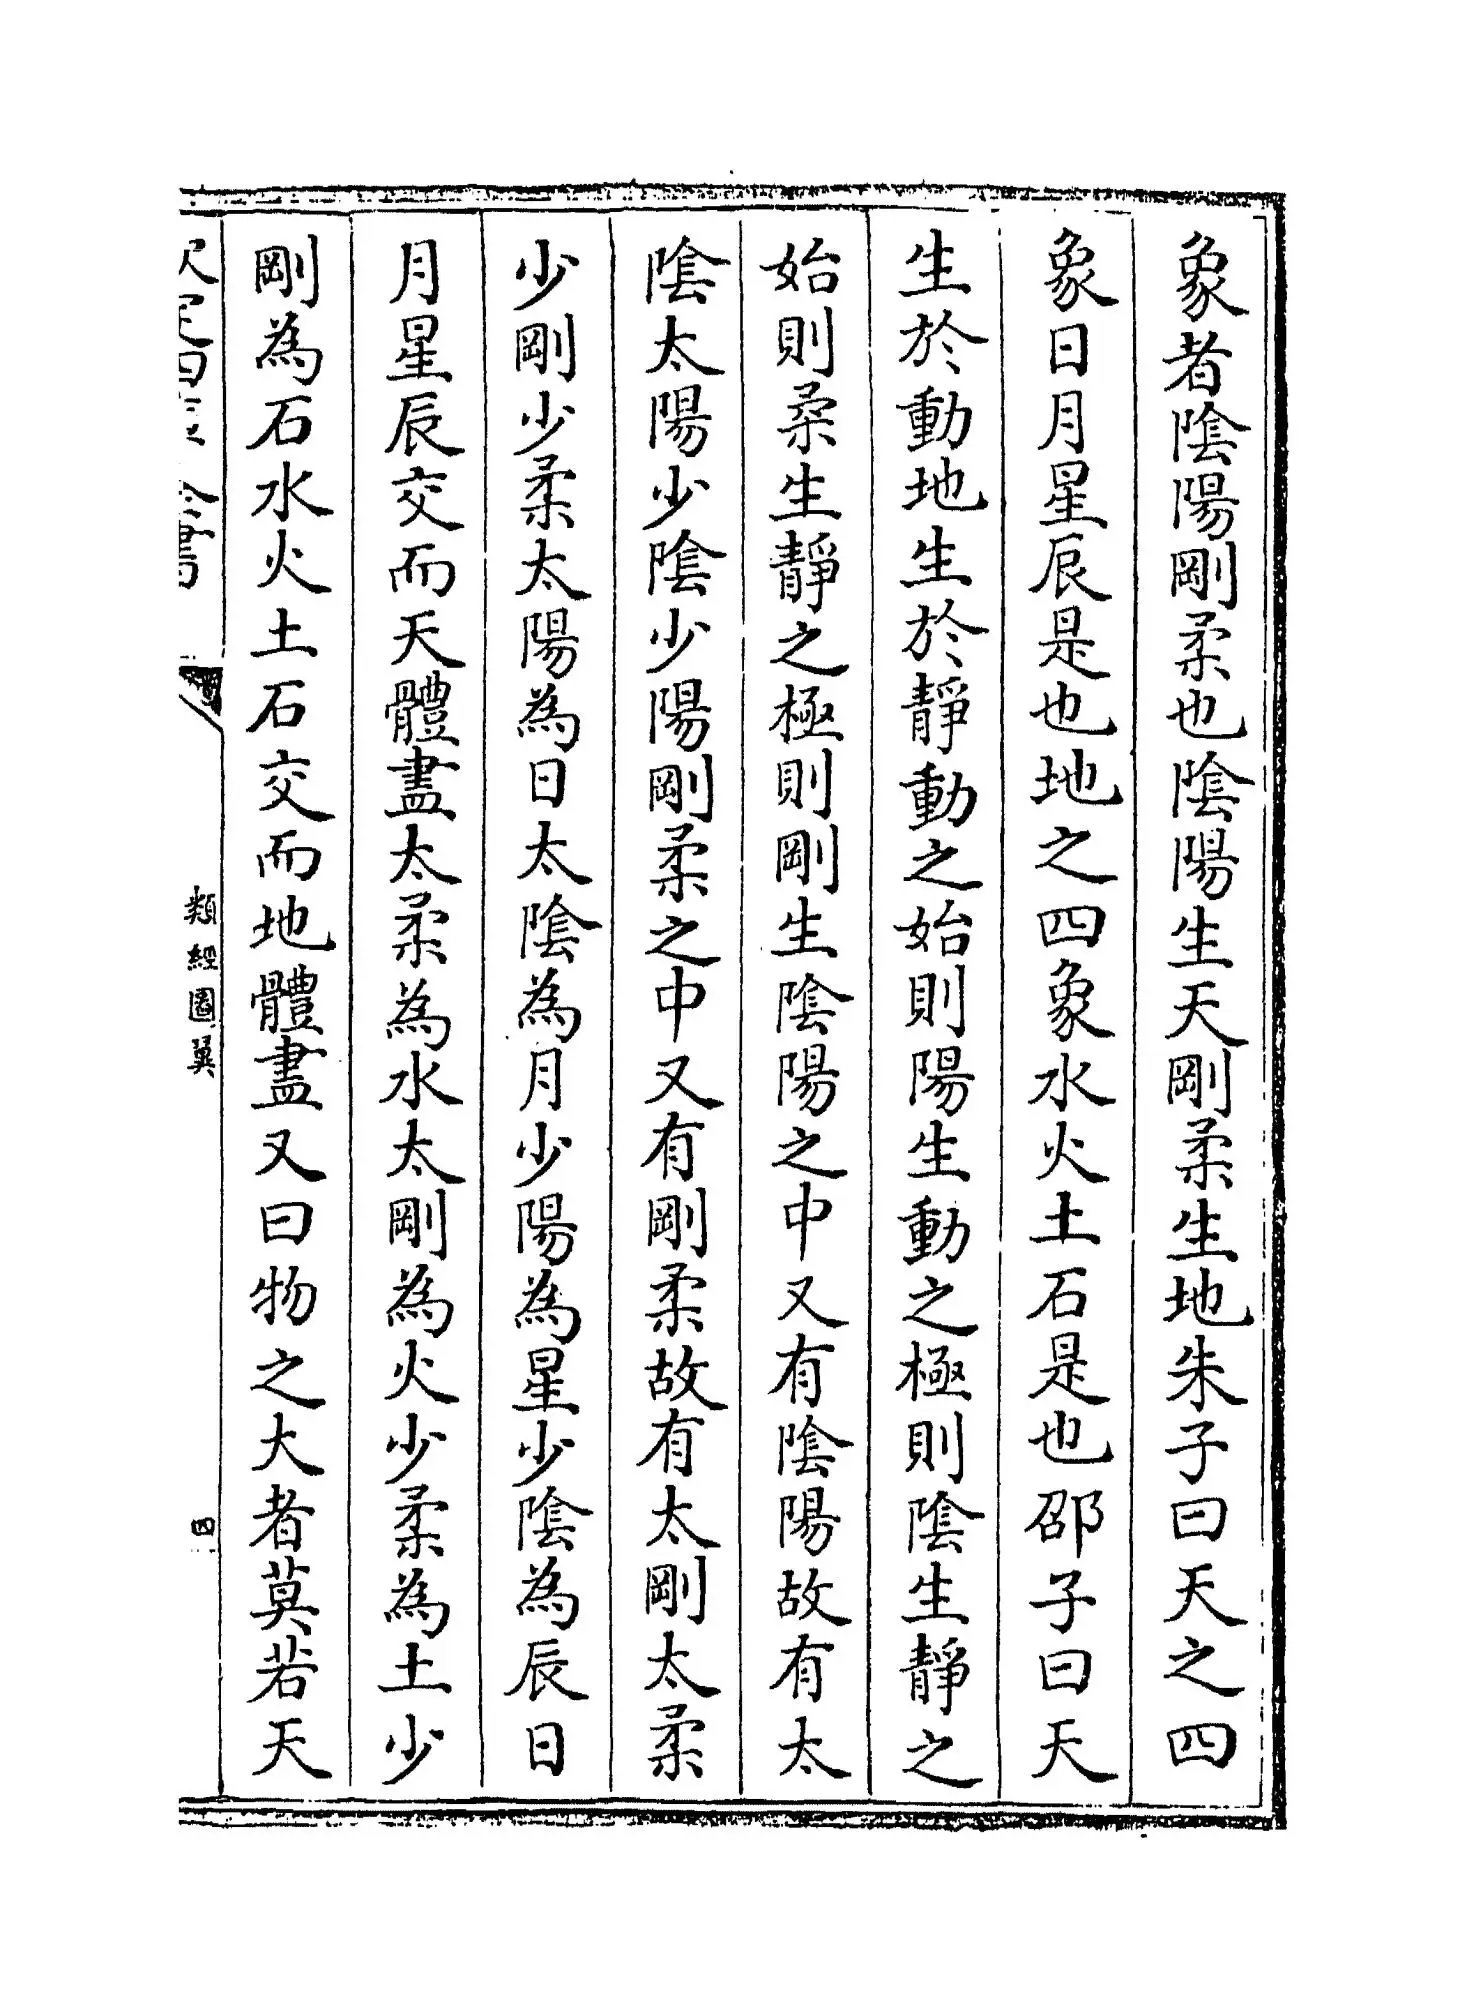 象者陰陽剛柔也陰陽生天剛柔生地朱子曰天之四
象日月星辰是也地之四象水火土石是也邵子曰天
生於動地生於靜動之始則陽生動之極則陰生靜之
始則柔生靜之極則剛生陰陽之中又有陰陽故有太
陰太陽少陰少陽剛柔之中又有剛柔故有太剛太柔
少剛少柔太陽為日太陰為月少陽為星少陰為辰日
月星辰交而天體盡太柔為水太剛為火少柔為土少
剛為石水火土石交而地體盡又曰物之大者莫若天
欽定四庫全書
類經圖翼
四